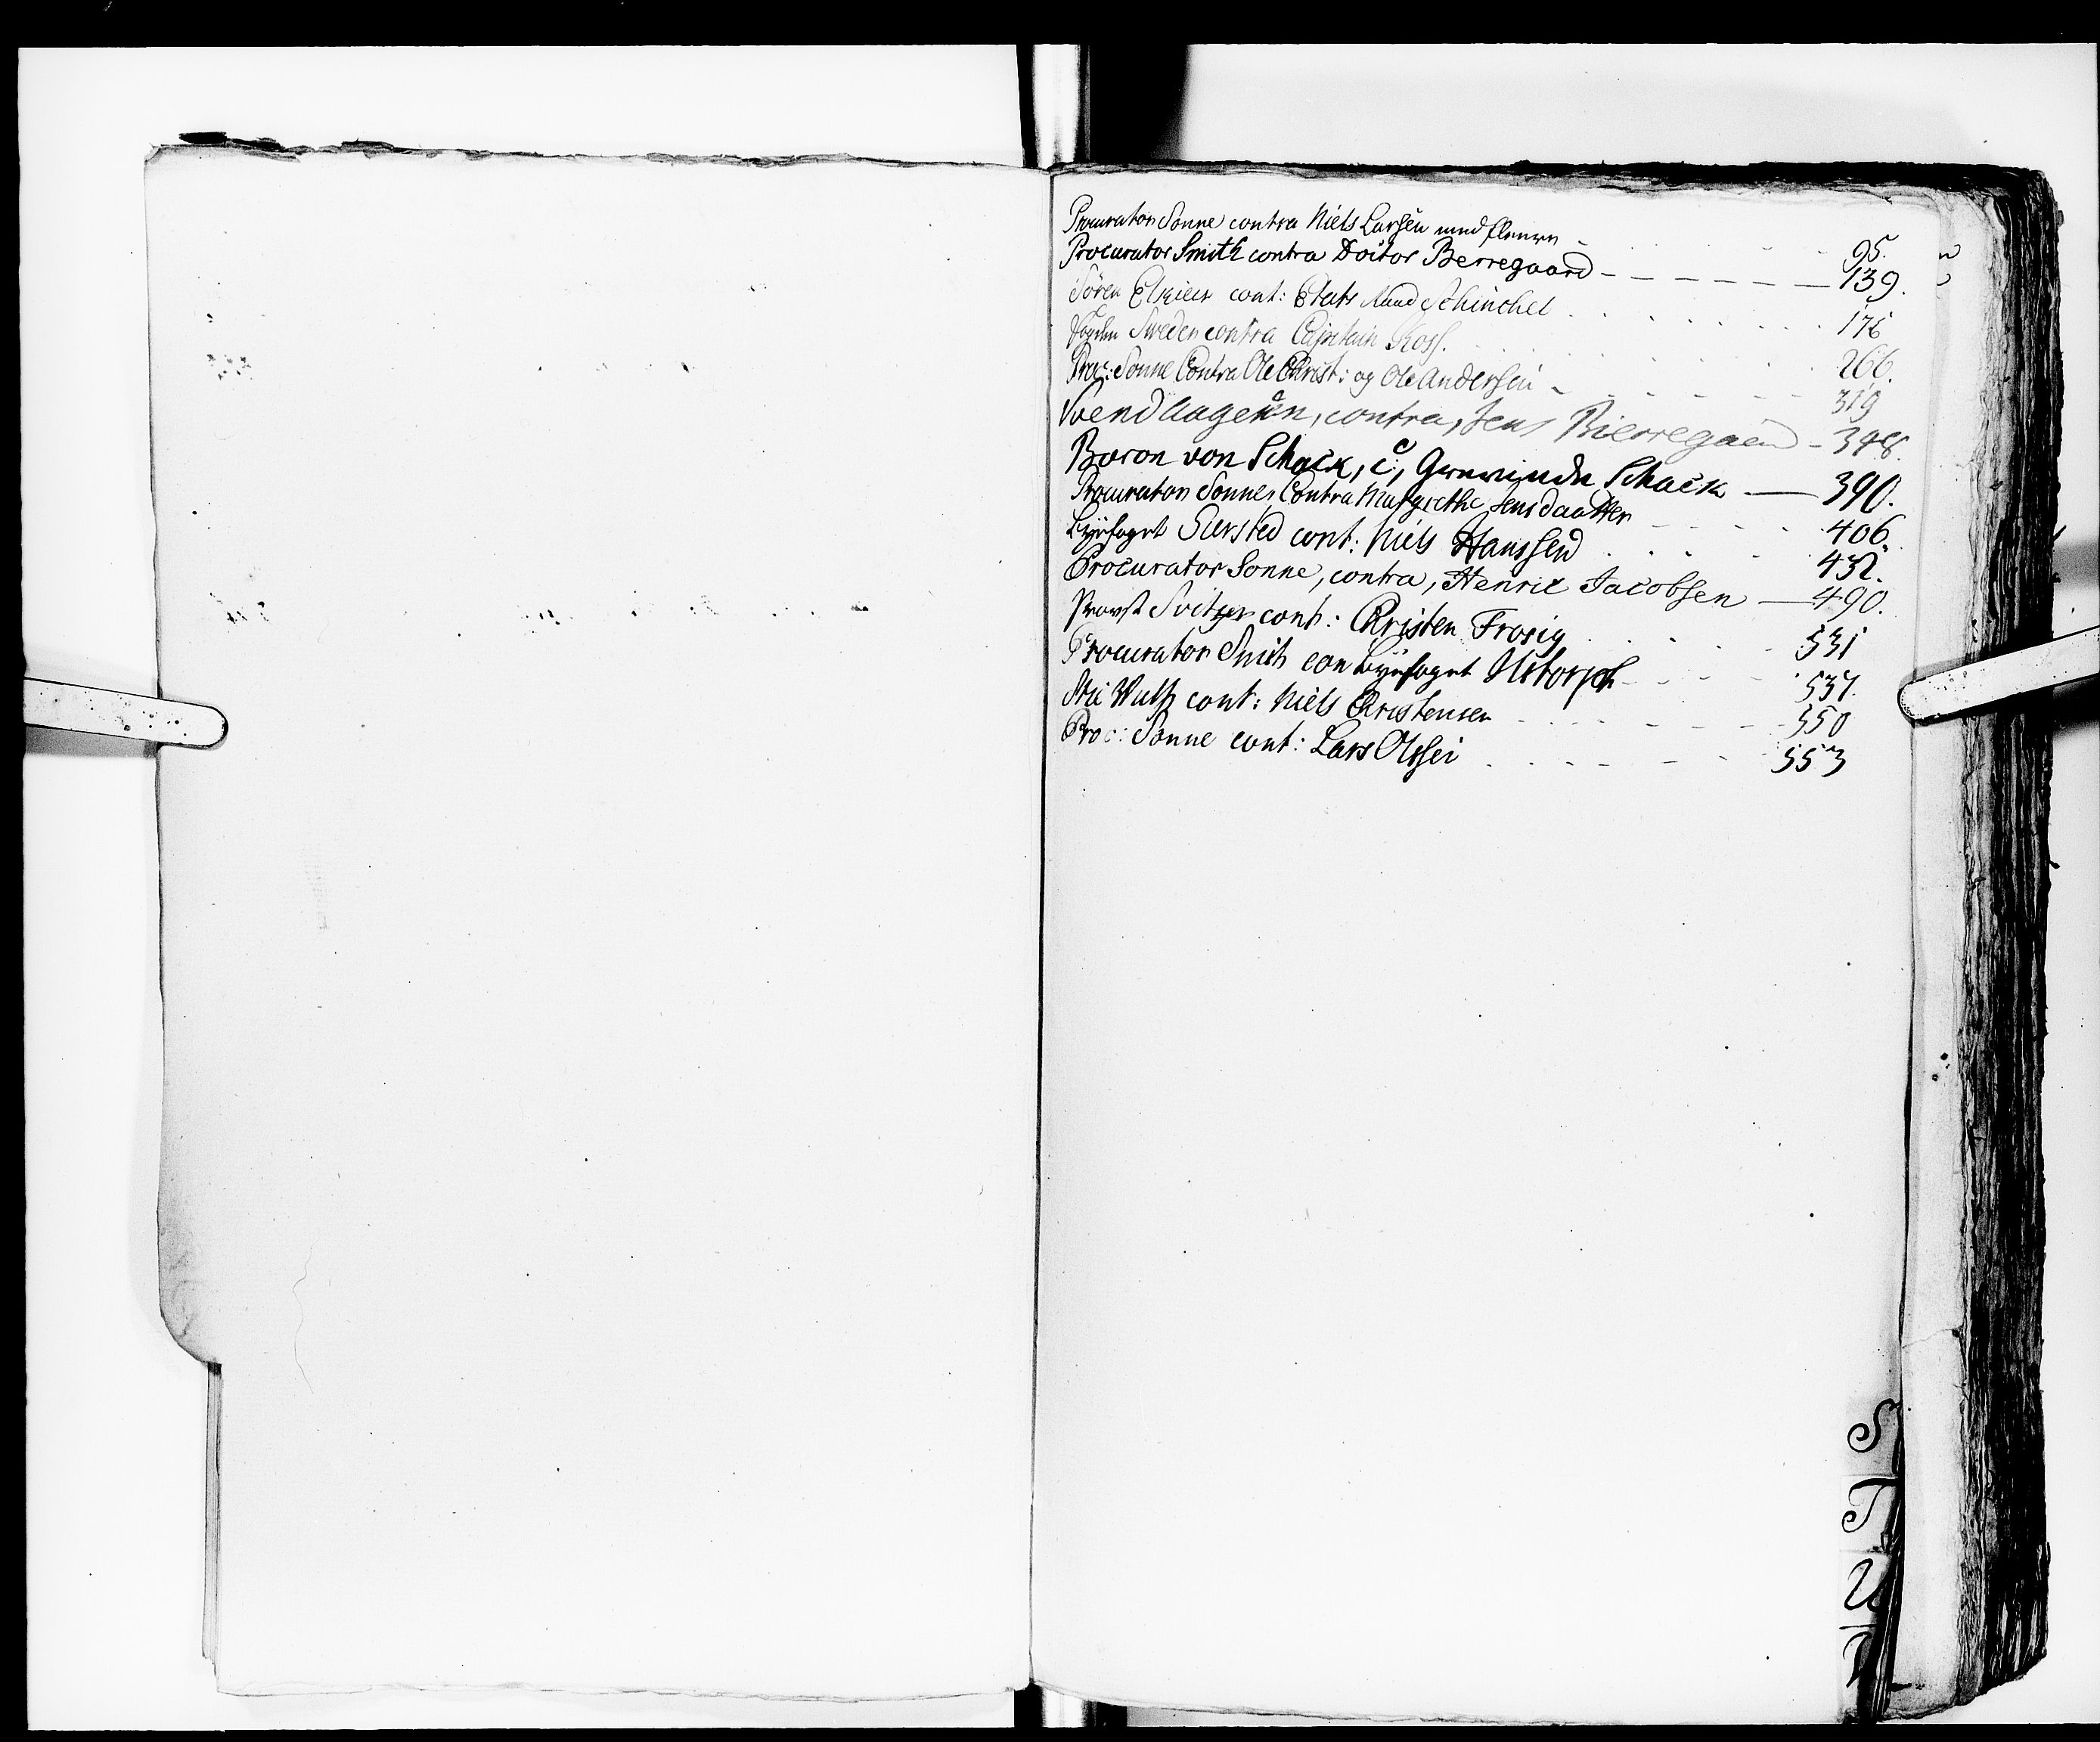 Procurator Sonne contra Niels Larsen med fleere 95.
Procurator Smith contra Doctor Berregaard 139.
Sören cont: Etats Raad Schinchel 176
Fogden Sweder contra Capitain Koss. 266.
Proc: Sonne Contra Ole Christ: og Ole Andersen 319
Svend contra, Jens Bierregaard 348.
Baron von Schack, c:, Grevinde Schack 390.
Procurator Sonne Contra Margrethe Jensdaatter 406.
Byefoget cont: Niels Hanssen 432.
Procurator Sonne, contra, Henric Jacobsen 490.
Provst Svitzer cont: Christen Frosig 531
Procurator Smith con Byefoget Ustorph 537.
cont: Niels Christensen 550
Proc: Sonne cont: Lars Olssen 553
S
T
U